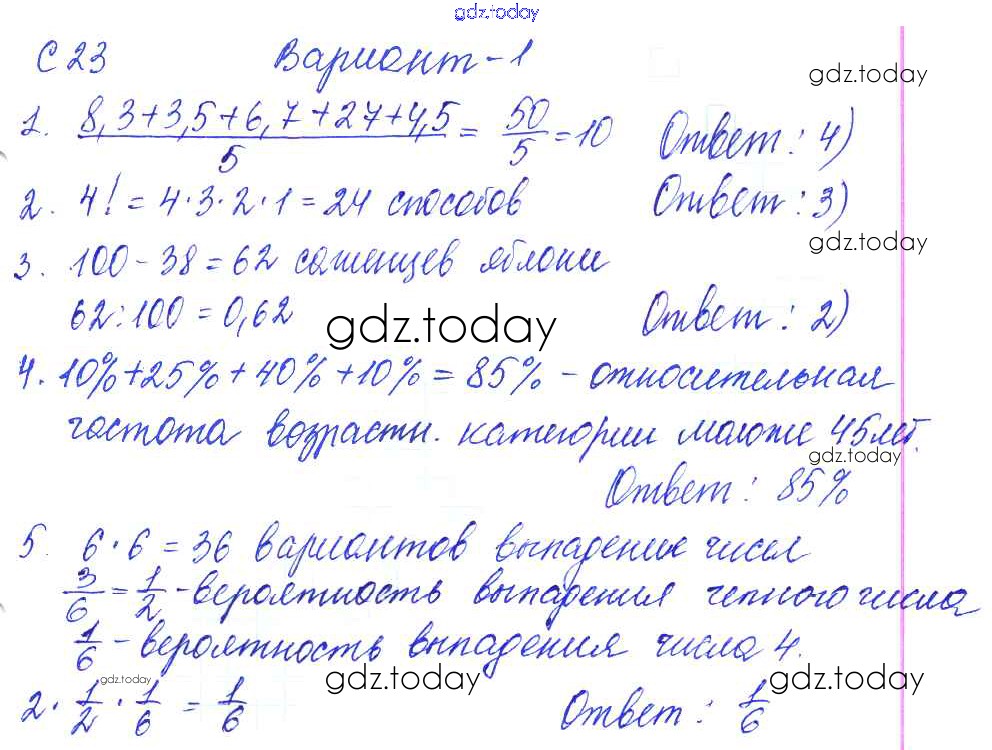 gdz.today
С 23 Вариант - 1
gdz.today
1. (8,3+3,5+6,7+27+4,5)/5 = 50/5 = 10 Ответ: 4)
2. 4! = 4·3·2·1 = 24 способов Ответ: 3)
gdz.today
3. 100 - 38 = 62 саженцев яблони
62:100 = 0,62 Ответ: 2)
gdz.today
4. 10%+25%+40%+10% = 85% - относительная
частота возрастн. категории моложе 45 лет.
gdz.today
Ответ: 85%
5. 6·6 = 36 вариантов выпадение чисел
3/6 = 1/2 - вероятность выпадения четного числа
1/6 - вероятность выпадения числа 4.
gdz.today gdz.today gdz.today
2 · 1/2 · 1/6 = 1/6 Ответ: 1/6